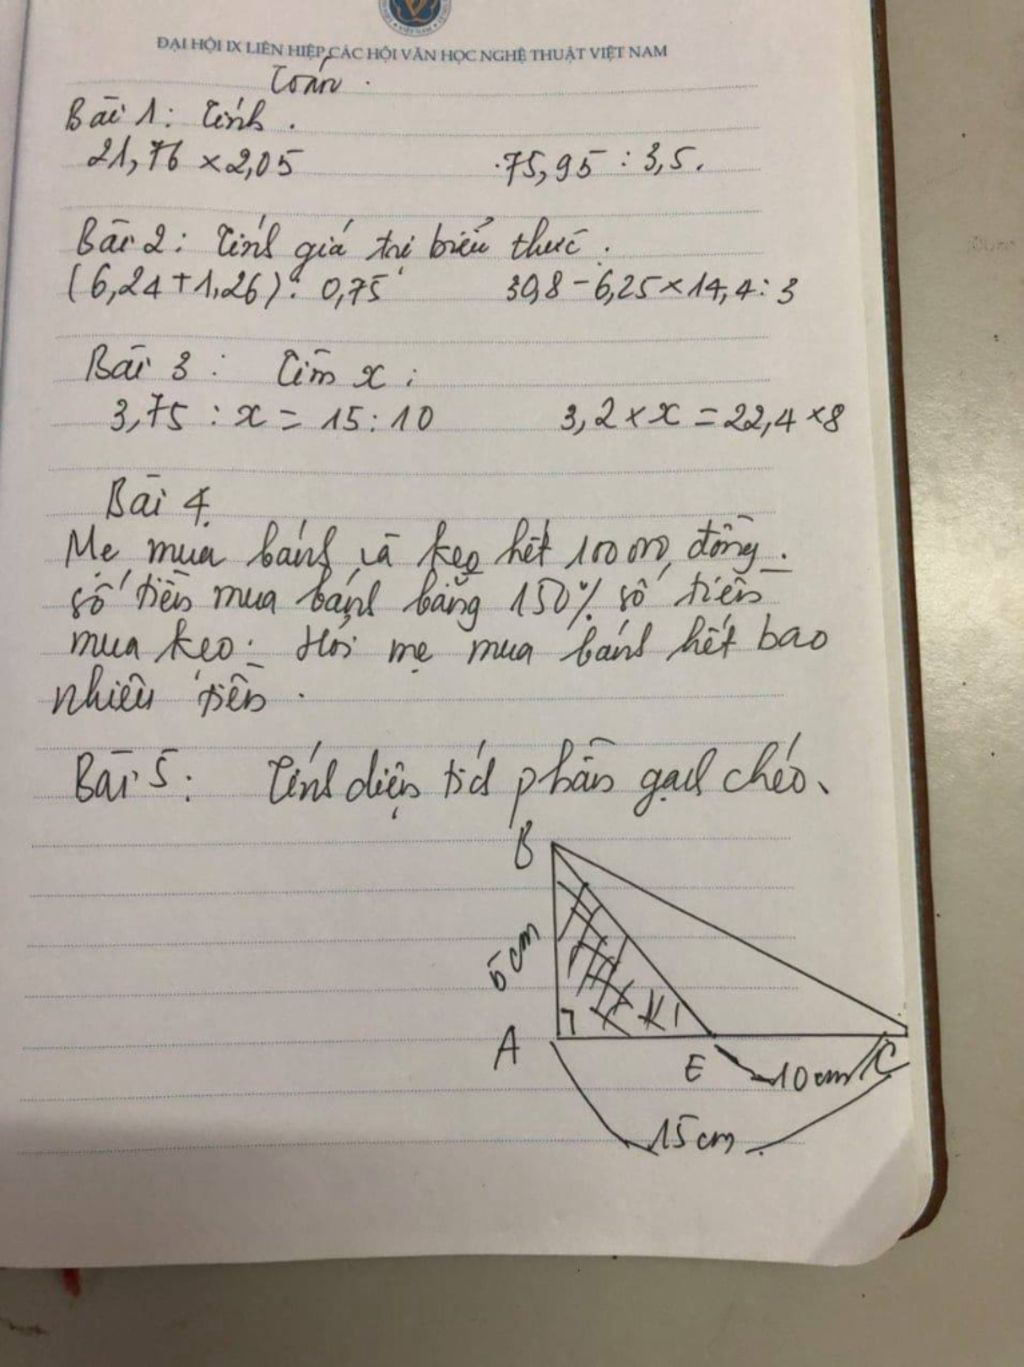 ĐẠI HỘI IX LIÊN HIỆP CÁC HỘI VĂN HỌC NGHỆ THUẬT VIỆT NAM
Toán.
Bài 1: Tính.
21,76 × 2,05 75,95 : 3,5.
Bài 2: Tính giá trị biểu thức.
(6,24 + 1,26) : 0,75 308 - 6,25 × 14,4 : 3
Bài 3: Tìm x:
3,75 : x = 15 : 10 3,2 × x = 22,4 × 8
Bài 4.
Mẹ mua bánh và kẹo hết 100000 đồng.
số tiền mua bánh bằng 150% số tiền
mua kẹo. Hỏi mẹ mua bánh hết bao
nhiêu tiền.
Bài 5: Tính diện tích phần gạch chéo.
B
A
E
C
10cm
15cm